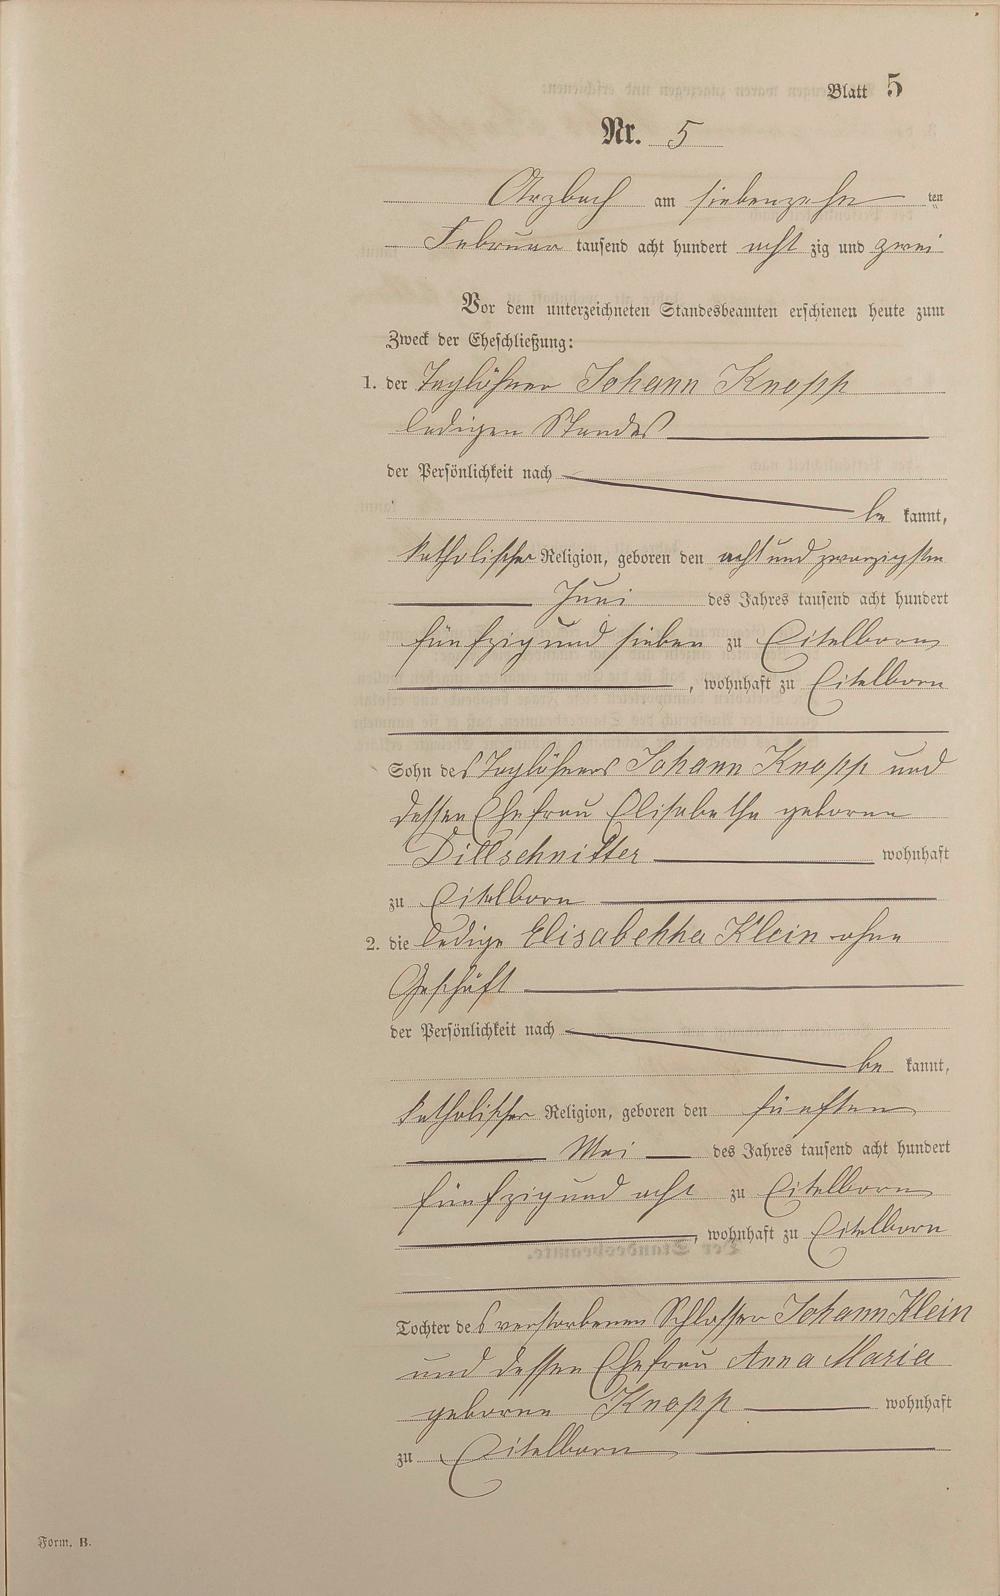 Blatt 5
Nr. 5
Arzbach am siebenzehn ten
Februar tausend acht hundert acht zig und zwei
Vor dem unterzeichneten Standesbeamten erschienen heute zum
Zweck der Eheschließung:
1. der Taglöhner Johann Knopp
ledigen Standes
der Persönlichkeit nach
be kannt,
katholischer Religion, geboren den acht und zwanzigsten
Juni des Jahres tausend acht hundert
fünfzig und sieben zu Eitelborn
, wohnhaft zu Eitelborn
Sohn des Taglöhners Johann Knopp und
dessen Ehefrau Elisabetha geborne
Dillschnitter wohnhaft
zu Eitelborn
2. die ledige Elisabehha Klein ohne
Geschäft
der Persönlichkeit nach
be kannt,
katholischer Religion, geboren den fünften
Mai des Jahres tausend acht hundert
fünfzig und acht zu Eitelborn
, wohnhaft zu Eitelborn
Tochter des verstorbenen Schlosser Johann Klein
und dessen Ehefrau Anna Maria
geborne Knopp wohnhaft
zu Eitelborn
Form. B.